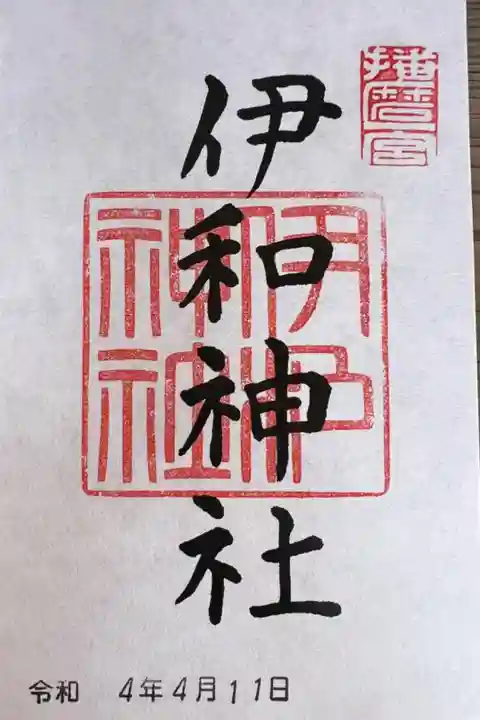 播磨一宮
伊和神社
伊和神社
令和 4年4月11日